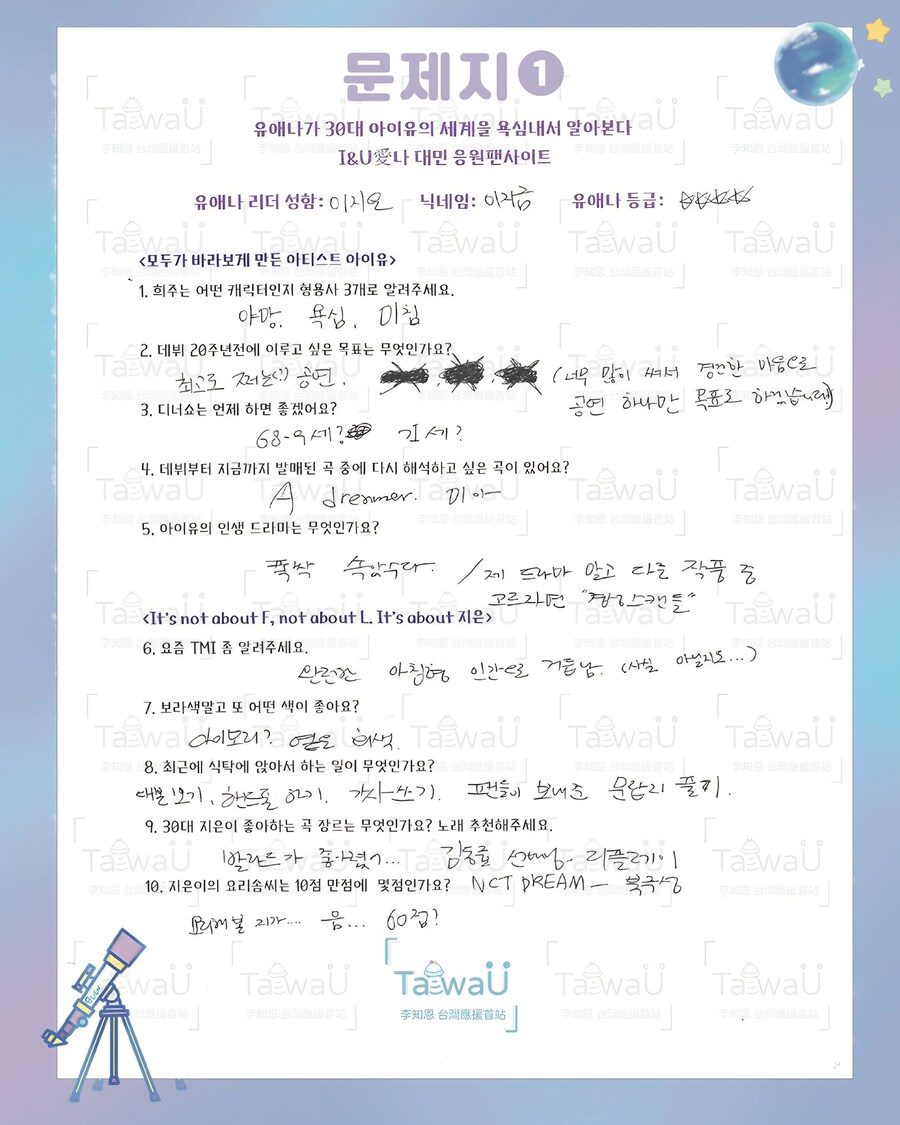 문제지 1
유애나가 30대 아이유의 세계을 욕심내서 알아본다
I&U愛나 대민 응원팬사이트
유애나 리더 성함: 이지은 닉네임: 이지금 유애나 등급: ☆☆☆☆☆
<모두가 바라보게 만든 아티스트 아이유>
1. 희주는 어떤 캐릭터인지 형용사 3개로 알려주세요.
야망, 욕심, 미침
2. 데뷔 20주년전에 이루고 싶은 목표는 무엇인가요?
최고로 쩌는(?) 공연, (너무 많이 써서 경건한 마음으로
공연 하나만 목표로 하겠습니다)
3. 디너쇼는 언제 하면 좋겠어요?
68-9세? 71세?
4. 데뷔부터 지금까지 발매된 곡 중에 다시 해석하고 싶은 곡이 있어요?
A dreamer. 미아
5. 아이유의 인생 드라마는 무엇인가요?
폭싹 속았수다. / 제 드라마 말고 다른 작품 중
고르라면 "경성스캔들"
<It's not about F, not about L. It's about 지은>
6. 요즘 TMI 좀 알려주세요.
완전한 아침형 인간으로 거듭남. (사실 아닐지도...)
7. 보라색말고 또 어떤 색이 좋아요?
아이보리? 옅은 회색.
8. 최근에 식탁에 앉아서 하는 일이 무엇인가요?
대본 보기, 핸드폰 하기. 가사쓰기. 팬들이 보내준 문답지 풀기.
9. 30대 지은이 좋아하는 곡 장르는 무엇인가요? 노래 추천해주세요.
발라드가 좋아졌어... 김동률 선배님- 리플레이
10. 지은이의 요리솜씨는 10점 만점에 몇점인가요? NCT DREAM — 북극성
요리해본 지가.... 음... 60점?
TaiwaU
李知恩 台灣應援首站